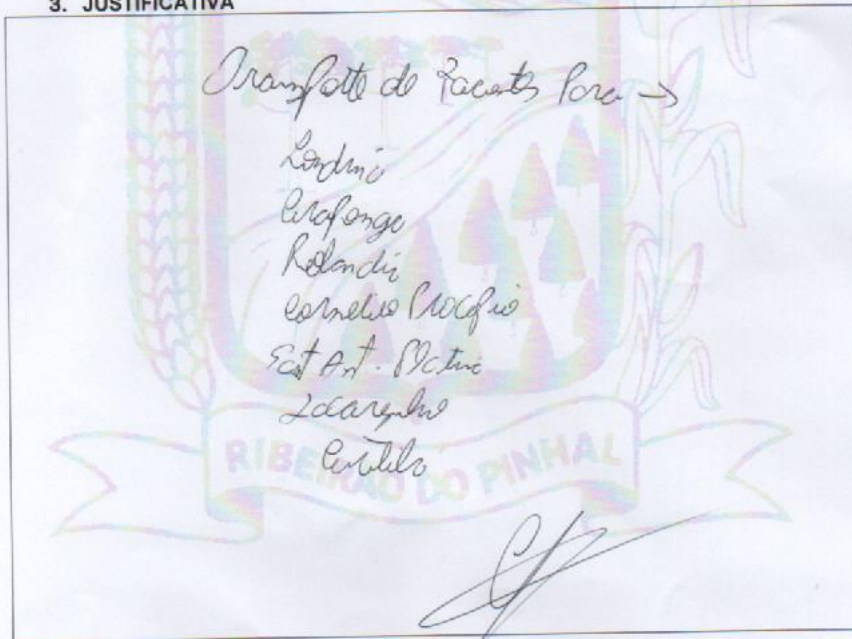 3. JUSTIFICATIVA
Transporte de Pacientes Para →
Londrina
Arapongas
Rolandia
Cornelio Procopio
Sant Ant. Platina
Jacarezinho
RIBEIRÃO DO PINHAL